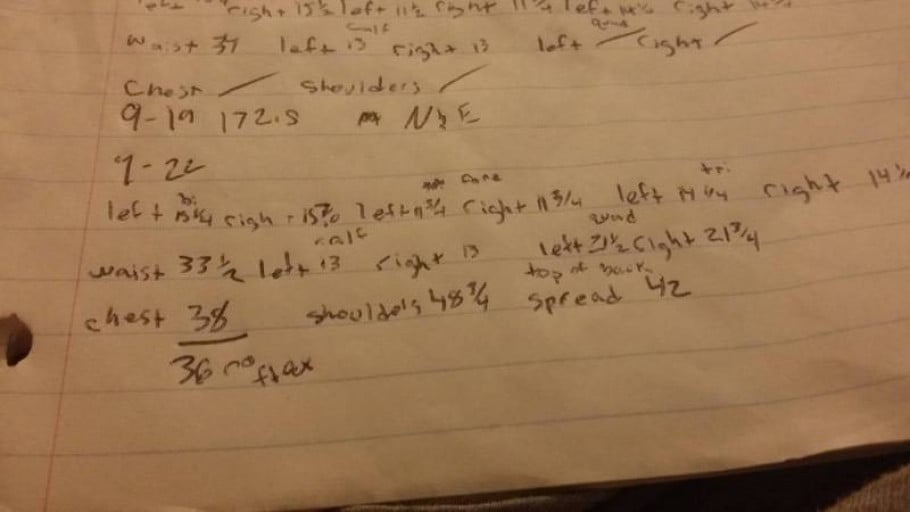 right 15 1/2 left 11 1/2 right left 14 1/4 right
calf quad
waist left 13 right 13 left — right —
chest — shoulders —
9-19 172.5 N&E
9-22
bi fore tri
left right left 11 3/4 right 11 3/4 left 14 1/4 right 14
calf quad
waist 33 1/2 left 13 right 13 left 21 1/2 right 21 3/4
top of back
chest 38 shoulders 48 3/4 spread 42
36 no flex